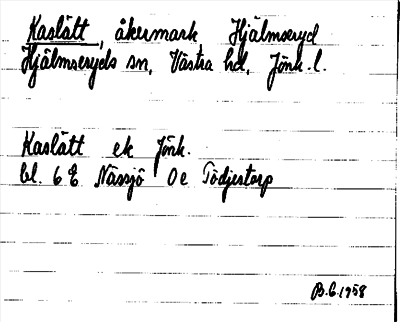 Kaslätt, åkermark Hjälmseryd
Hjälmseryds sn, Västra hd, Jönk. l.
Kaslätt ek Jönk.
bl. 6 E Nässjö 0 e Tödjestorp
B.G. 1958